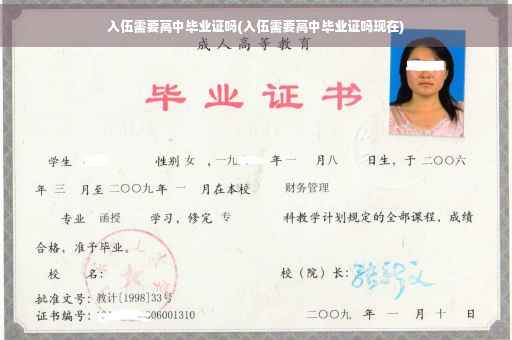 入伍需要高中毕业证吗(入伍需要高中毕业证吗现在)
成人高等教育
毕业证书
学生 性别 女 ,一九 年 一 月八 日生,于 二〇〇六
年 三 月至 二〇〇九 年 一 月在本校 财务管理
专业 函授 学习,修完 专 科教学计划规定的全部课程,成绩
合格,准予毕业。
校 名: 校(院)长:
批准文号:教计[1998]33号
证书编号: 06001310 二〇〇九 年 一 月 十 日